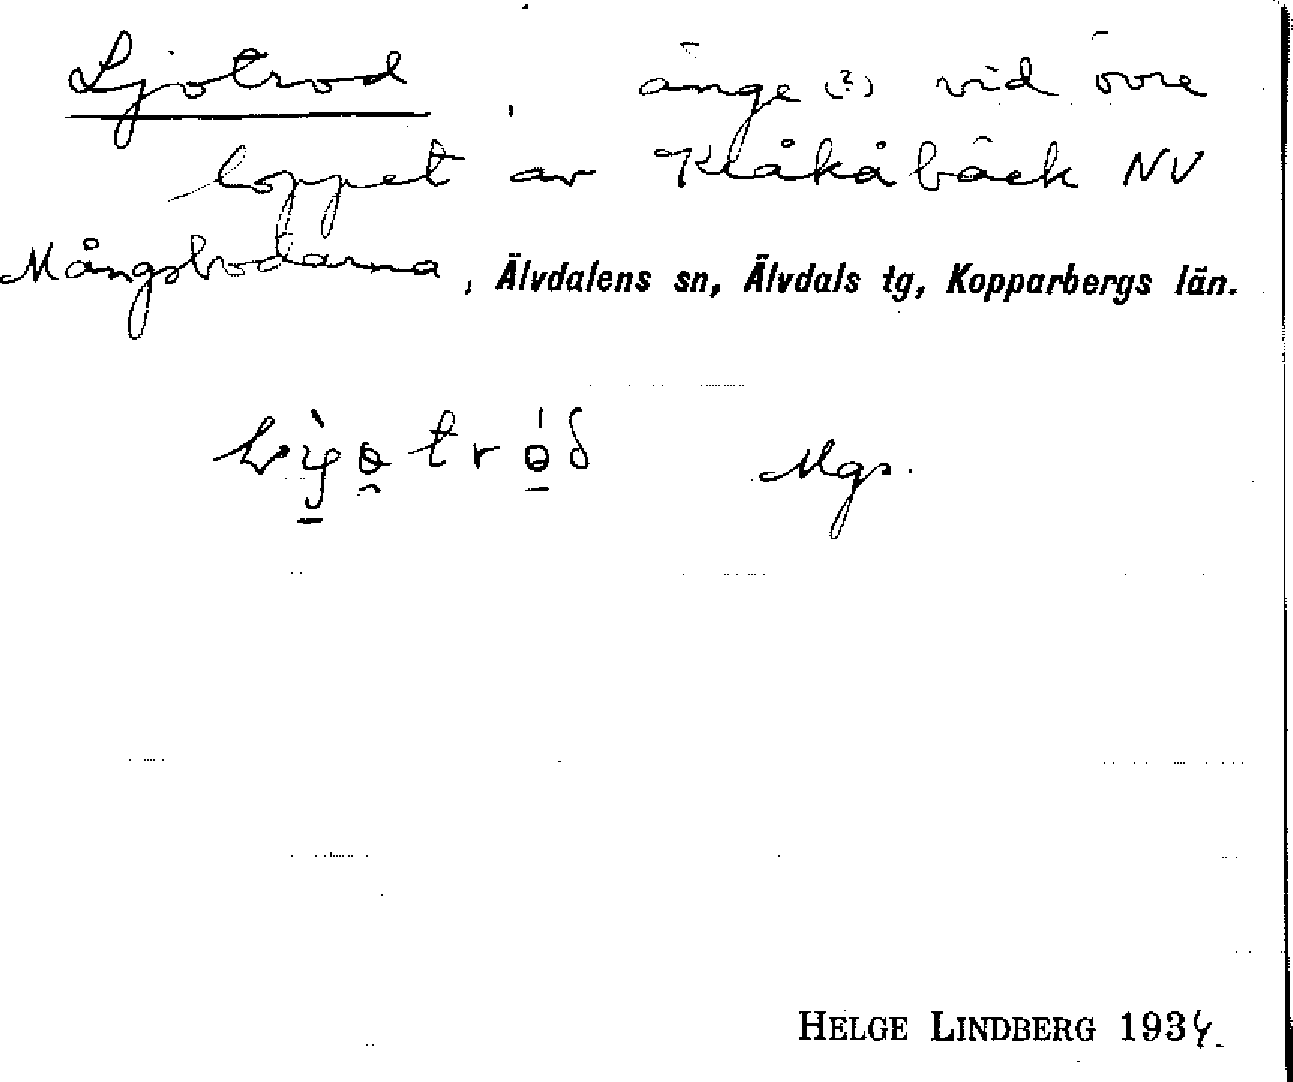 Ljotrod, änge (?) vid övre
loppet av Klåkåbäck NV
Mångsbodarna, Älvdalens sn, Älvdals tg, Kopparbergs län.
Mgs.
HELGE LINDBERG 1934.